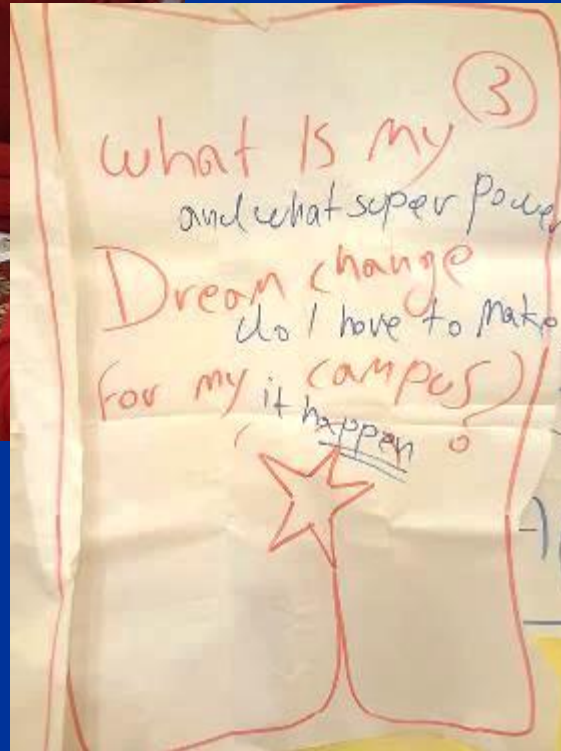 3
What Is My
and what super power
Dream change
do I have to make
for my campus?
it happen